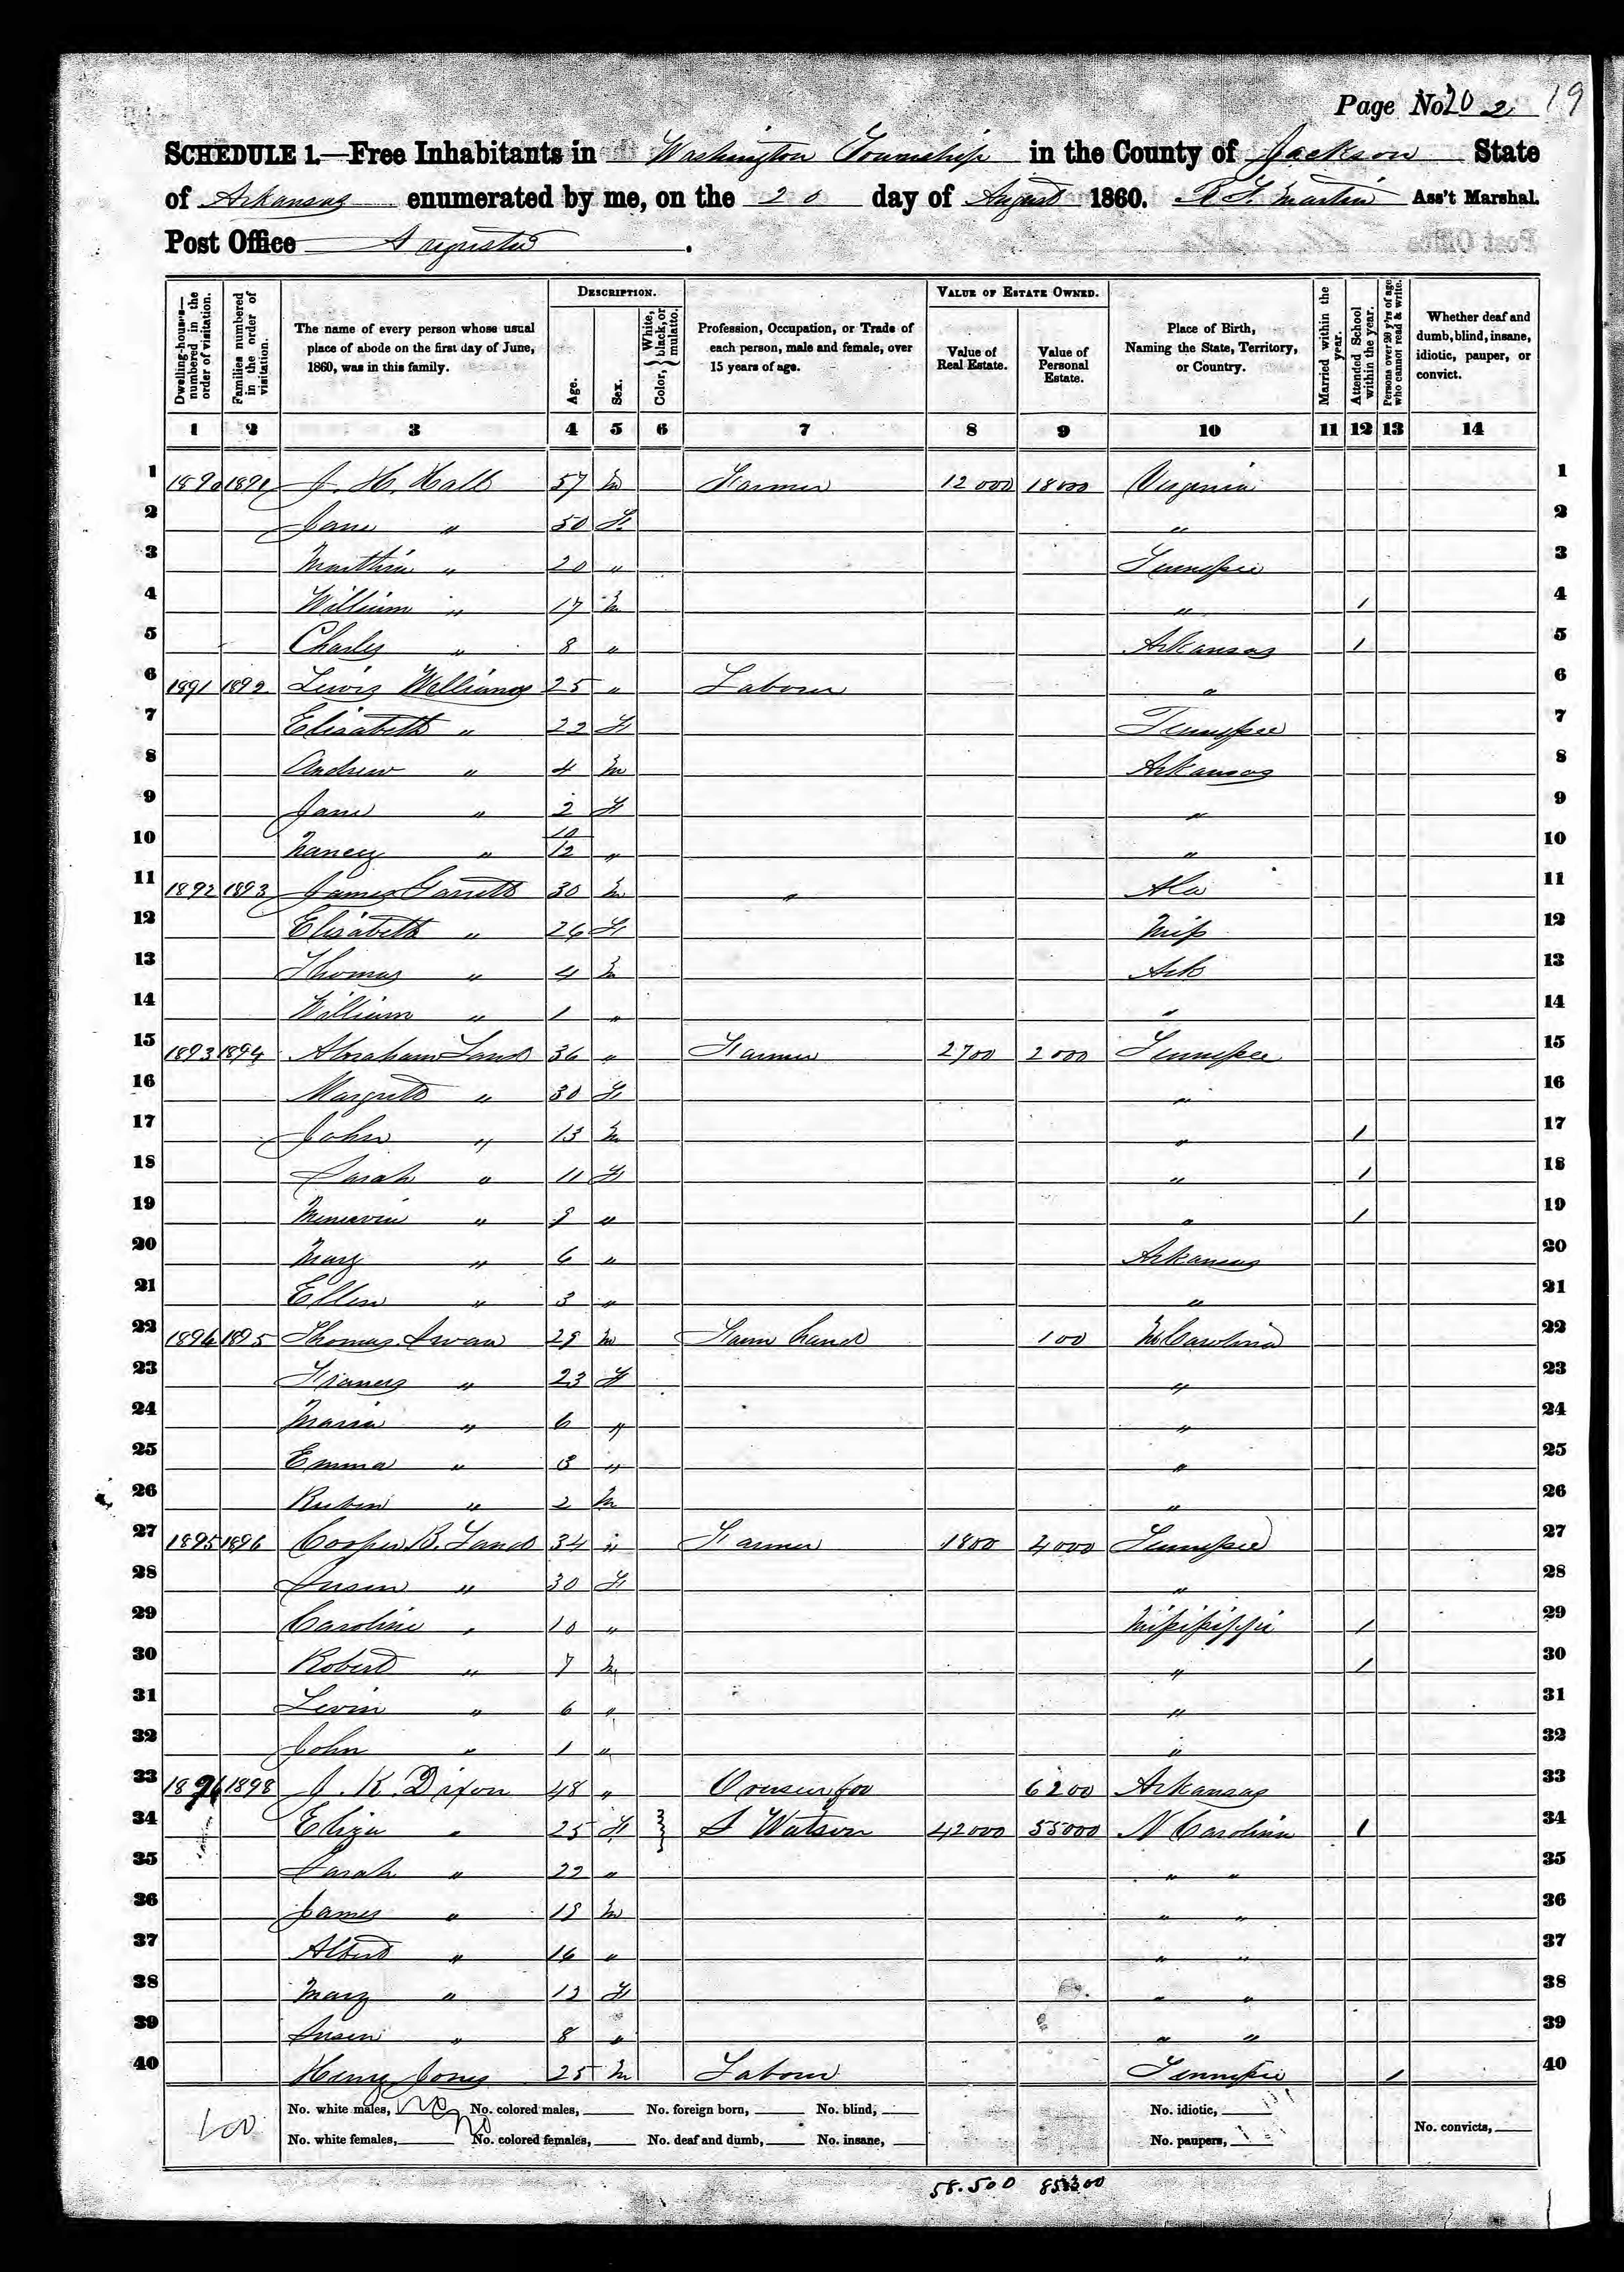 Page No 202 19
SCHEDULE 1.—Free Inhabitants in Washington Township in the County of Jackson State
of Arkansas enumerated by me, on the 20 day of August 1860. Ass't Marshal.
Post Office Augusta.
Dwelling-houses—numbered in the order of visitation.
Families numbered in the order of visitation.
The name of every person whose usual place of abode on the first day of June, 1860, was in this family.
DESCRIPTION.
Age.
Sex.
Color, White, black, or mulatto.
Profession, Occupation, or Trade of each person, male and female, over 15 years of age.
VALUE OF ESTATE OWNED.
Value of Real Estate.
Value of Personal Estate.
Place of Birth, Naming the State, Territory, or Country.
Married within the year.
Attended School within the year.
Persons over 20 y'rs of age who cannot read & write.
Whether deaf and dumb, blind, insane, idiotic, pauper, or convict.
1 2 3 4 5 6 7 8 9 10 11 12 13 14
1 1890 1891 J. H. Hall 57 m Farmer 12000 18000 Virginia 1
2 Jane " 50 F. " 2
3 20 " Tennessee 3
4 William " 17 m " 1 4
5 Charles " 8 " Arkansas 1 5
6 1891 1892 Lewis Williams 25 " Labour " 6
7 Elisabeth " 22 F Tennessee 7
8 Andrew " 4 m Arkansas 8
9 Jane " 2 F " 9
10 Nancy " 10/12 " " 10
11 1892 1893 James Garrett 30 m " Ala 11
12 Elisabeth " 26 F Miss 12
13 Thomas " 4 m Ark 13
14 William " 1 " " 14
15 1893 1894 Abraham Land 36 " Farmer 2700 2000 Tennessee 15
16 Margrett " 30 F " 16
17 John " 13 m " 1 17
18 Sarah " 11 F " 1 18
19 Minervia " 9 " " 1 19
20 Mary " 6 " Arkansas 20
21 Ellen " 3 " " 21
22 1894 1895 Thomas Swan 29 m Farm hand 100 N Carolina 22
23 Frances " 23 F " 23
24 Maria " 6 " " 24
25 Emma " 3 " " 25
26 Rubin " 2 m " 26
27 1895 1896 Cooper B. Land 34 " Farmer 1800 4000 Tennessee 27
28 Susen " 30 F " 28
29 Caroline " 10 " Missississippi 1 29
30 Robert " 7 m " 1 30
31 Levin " 6 " " 31
32 John " 1 " " 32
33 1896 1898 J. K. Dixon 48 " Overseer for 6200 Arkansas 33
34 Eliza " 25 F S Watson 42000 55000 N Carolina 1 34
35 Sarah " 22 " " " 35
36 James " 18 m " " 36
37 Albert " 16 " " " 37
38 Mary " 12 F " " 38
39 Susen " 8 " " " 39
40 Henry Jones 25 m Labour Tennessee 1 40
No. white males, No. colored males, No. foreign born, No. blind, No. idiotic,
No. white females, No. colored females, No. deaf and dumb, No. insane, No. paupers, No. convicts,
58.500